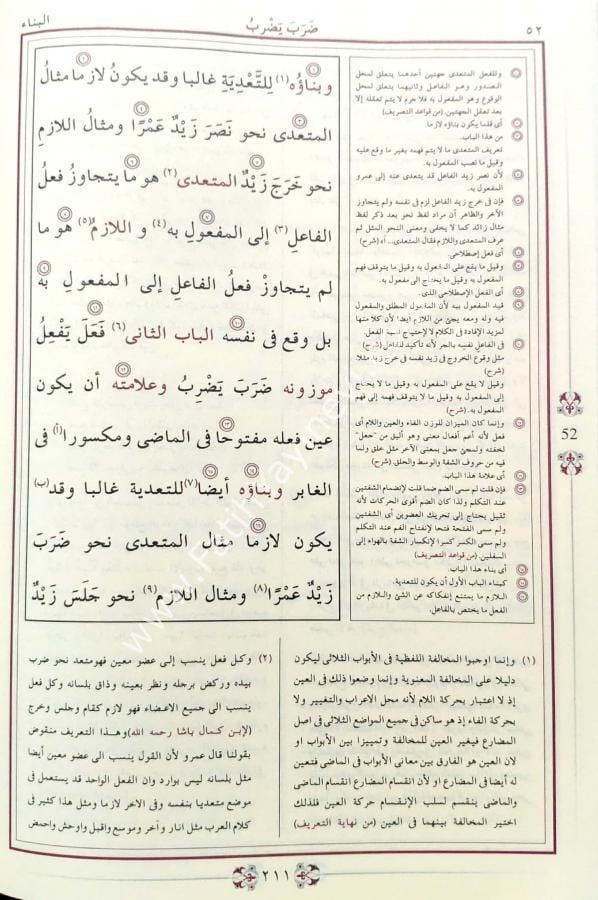 ٥٢
ضَرَبَ يَضْرِبُ
البناء
وبناؤُه (١) لِلتَّعْدِيَةِ غالبا وقد يكونُ لازما مثالُ
المتعدى نحو نَصَرَ زَيْدٌ عَمْرًا ومثالُ اللازمِ
نحو خَرَجَ زَيْدٌ المتعدى (٢) هو ما يتجاوزُ فعلُ
الفاعلِ (٣) إلى المفعولِ به (٤) و اللازمُ (٥) هو ما
لم يتجاوزْ فعلُ الفاعلِ إلى المفعولِ به
بل وقع فى نفسه الباب الثانى (٦) فَعَلَ يَفْعِلُ
موزونه ضَرَبَ يَضْرِبُ وعلامته أن يكون
عين فعله مفتوحا فى الماضى ومكسورا (أ) فى
الغابر وبناؤه أيضا (٧) للتعدية غالبا وقد (ب)
يكون لازما مثال المتعدى نحو ضَرَبَ
زَيْدٌ عَمْرًا (٨) ومثال اللازم (٩) نحو جَلَسَ زَيْدٌ
وللفعل المتعدى جهتين أحدهما يتعلق لمحل
الصدور وهو الفاعل وثانيهما يتعلق لمحل
الوقوع وهو المفعول به فلا جرم لا يتم تعقله إلا
بعد تعقل الجهتين. (من قواعد التصريف)
أى قلما يكون بناؤه لازما.
من هذا الباب.
تعريف المتعدى ما لا يتم فهمه بغير ما وقع عليه
وقيل ما نصب المفعول به.
لأن نصر زيد الفاعل قد يتعدى عنه إلى عمرو
المفعول به.
فإن فى خرج زيد الفاعل لزم فى نفسه ولم يتجاوز
الآخر والظاهر أن مراد لفظ نحو بعد ذكر لفظ
مثال زائد كما لا يخفى ومعنى نحو المثل لم
عرف المتعدى واللازم فقال المتعدى... أه (شرح)
أى فعل إصطلاحى.
وقيل ما يقع على المفعول به وقيل ما يتوقف فهم
المفعول به وقيل ما يحتاج الى مفعول به.
أى الفعل الإصطلاحى الذى.
قيد المفعول ببه لأن المفعول المطلق والمفعول
فيه وله ومعه يجئ من اللازم أيضا لأن كلها
لمزيد الإفادة فى الكلام لا لإحتياج نسبة الفعل.
فى الفاعل نفسه بالجر لأنه تأكيد للفاعل (شرح)
مثل وقوع الخروج فى زيد نفسه فى خرج زيد مثلا
(شرح)
وقيل لا يقع على المفعول به وقيل ما لا يحتاج
إلى المفعول به وقيل ما لا يتوقف فهمه إلى فهم
المفعول به. (شرح)
وإنما كان الميزان للوزن الفاء والعين واللام أى
فعل لأنه أعم أفعال معنى وهو أليق من "جعل"
لخفته ولمجئ جعل بمعنى الآخر مثل خلق ولما
فيه من حروف الشفة والوسط والحلق (شرح)
أى علامة هذا الباب.
فإن قلت لم سمى الضم ضما قلت لإنضمام الشفتين
عند التكلم ولذا كان الضم أقوى الحركات لأنه
ثقيل يحتاج إلى تحريك العضوين أى الشفتين
ولم سمى الفتحة فتحا لإنفتاح الفم عند التكلم
ولم سمى الكسر كسرا لإنكسار الشفة بالهواء إلى
السفلين. (من قواعد التصريف)
أى بناء هذا الباب.
كبناء الباب الأول أن يكون للتعدية.
اللازم ما يمتنع إنفكاكه عن الشئ واللازم من
الفعل ما يختص بالفاعل.
52
(١) وإنما اوجبوا المخالفة اللفظية فى الأبواب الثلاثى ليكون
دليلا على المخالفة المعنوية وإنما وضعوا ذلك فى العين
إذ لا اعتبار بحركة اللام لأنه محل الاعراب والتغيير ولا
بحركة الفاء إذ هو ساكن فى جميع المواضع الثلاثى فى اصل
المضارع فيغير العين للمخالفة وتمييزا بين الأبواب او
لان العين هو الفارق بين معانى الأبواب فى الماضى فتعين
له أيضا فى المضارع او لأن انقسام المضارع انقسام الماضى
والماضى ينقسم لسلب الإنقسام حركة العين فلذلك
اختير المخالفة بينهما فى العين (من نهاية التعريف)
(٢) وكل فعل ينسب إلى عضو معين فهومتعد نحو ضرب
بيده وركض برجله ونظر بعينه وذاق بلسانه وكل فعل
ينسب الى جميع الاعضاء فهو لازم كقام وجلس وخرج
(لإبن كمال باشا رحمه الله) وهذا التعريف منقوض
بقولنا قال عمرو لأن القول ينسب الى عضو معين أيضا
مثل بلسانه ليس بوارد وان الفعل الواحد قد يستعمل فى
موضع متعديا بنفسه وفى الاخر لازما ومثل هذا كثير فى
كلام العرب مثل انار وآخر وموسع واقبل واوحش واحمض
٢١١